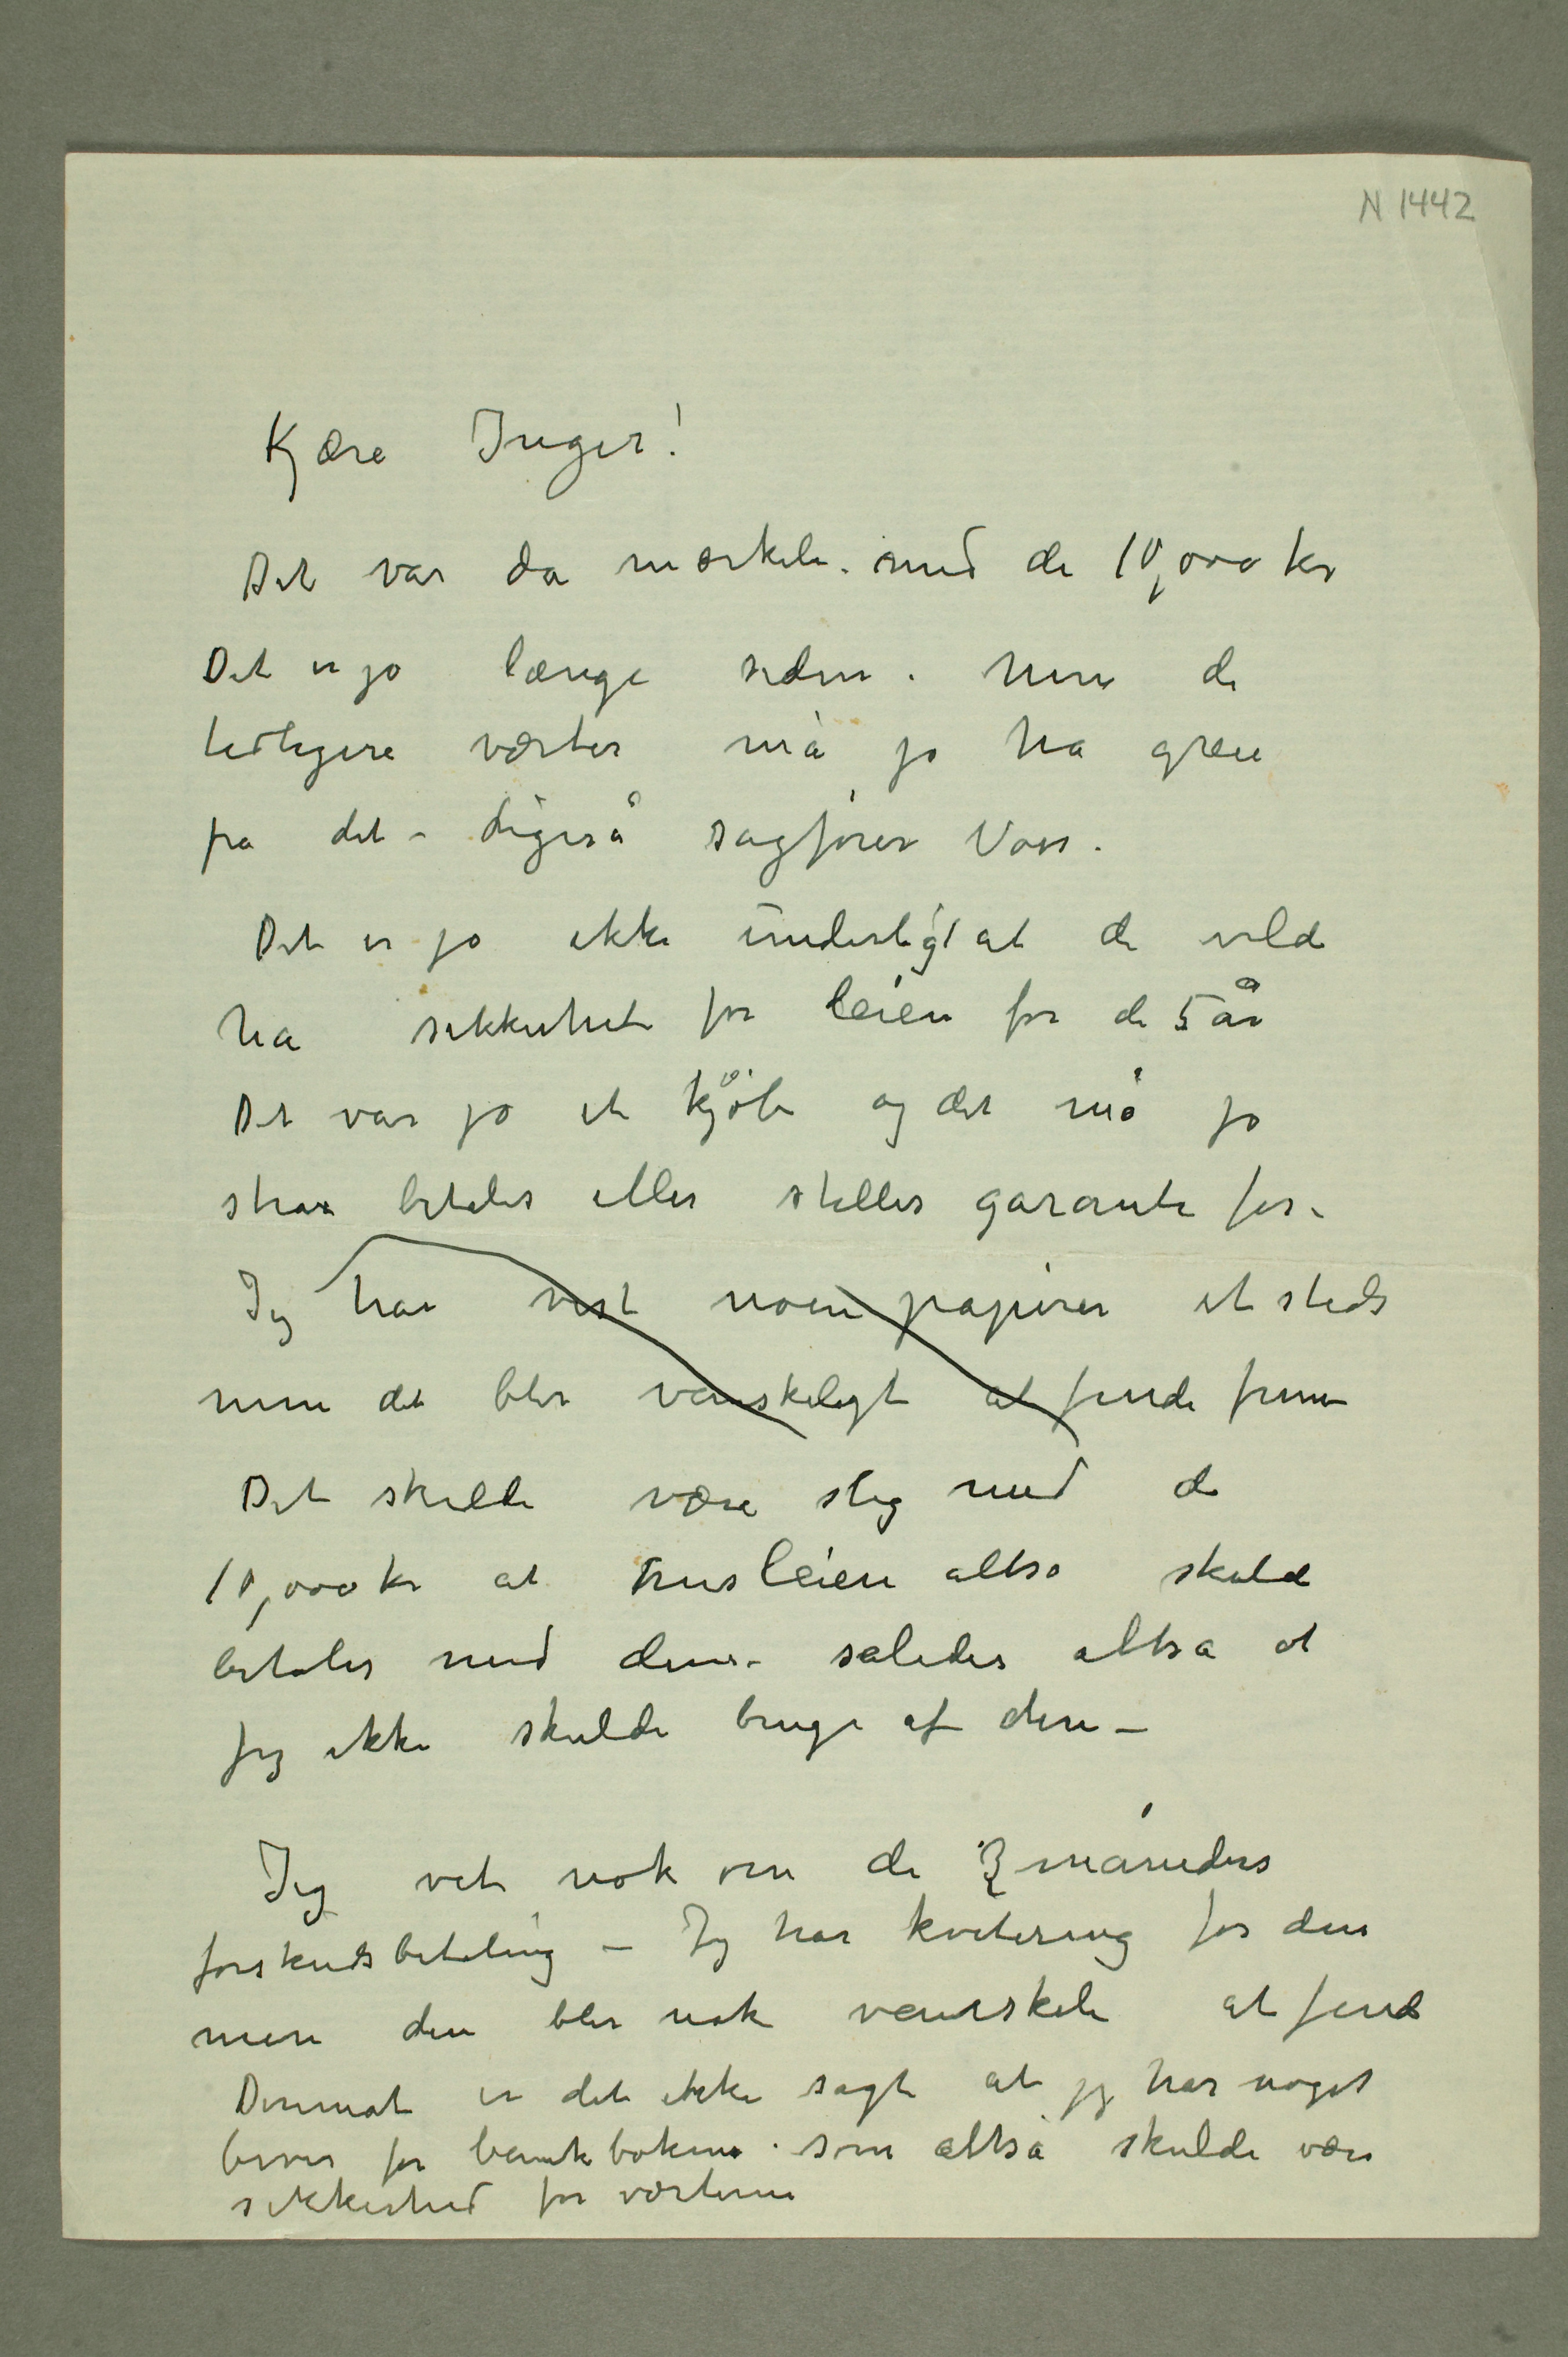 N 1442
Kjære Inger!
Det var da mærkeli. med de 10,000 kr
Det er jo længe siden. Men de
tidligere værter må jo ha greie
fra det – ligeså sagfører Voss.
Det er jo ikke underligt at de vilde
ha sikkerhet for leien for de 5 år
Det var jo et kjøb og det må jo
strax betales eller stilles garanti for.
Jeg har vist noen papirer et steds
men det blir vanskeligt at finde frem
Det skulde være slig med de
10,000 kr at husleien altså skulde
betales med dem – således altså at
jeg ikke skulde bruge af den –
Jeg vet nok om de 3 måneders
forskudsbetaling – Jeg har kvitering for den
men den blir nok vanskeli at finde
Derimot er det ikke sagt at jeg har noget
bevis for bankboken. som altså skulde være
sikkerhed for værterne